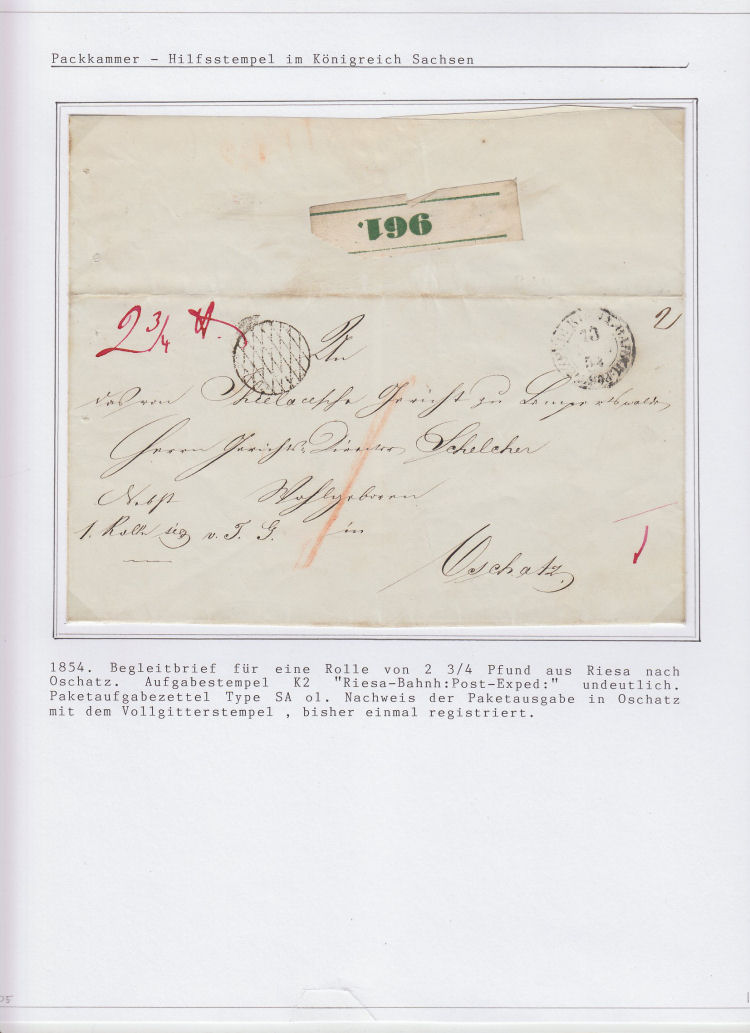 Packkammer - Hilfsstempel im Königreich Sachsen
961.
2 3/4 ℔.
An
2
13
54
das von Thielau'sche Gericht zu Lampertswalde
Herrn Gerichts-Director Schelcher
Nebst Wohlgeboren
1. Rolle sig v. T. G. in
Oschatz.
1854. Begleitbrief für eine Rolle von 2 3/4 Pfund aus Riesa nach
Oschatz. Aufgabestempel K2 "Riesa-Bahnh:Post-Exped:" undeutlich.
Paketaufgabezettel Type SA o1. Nachweis der Paketausgabe in Oschatz
mit dem Vollgitterstempel , bisher einmal registriert.